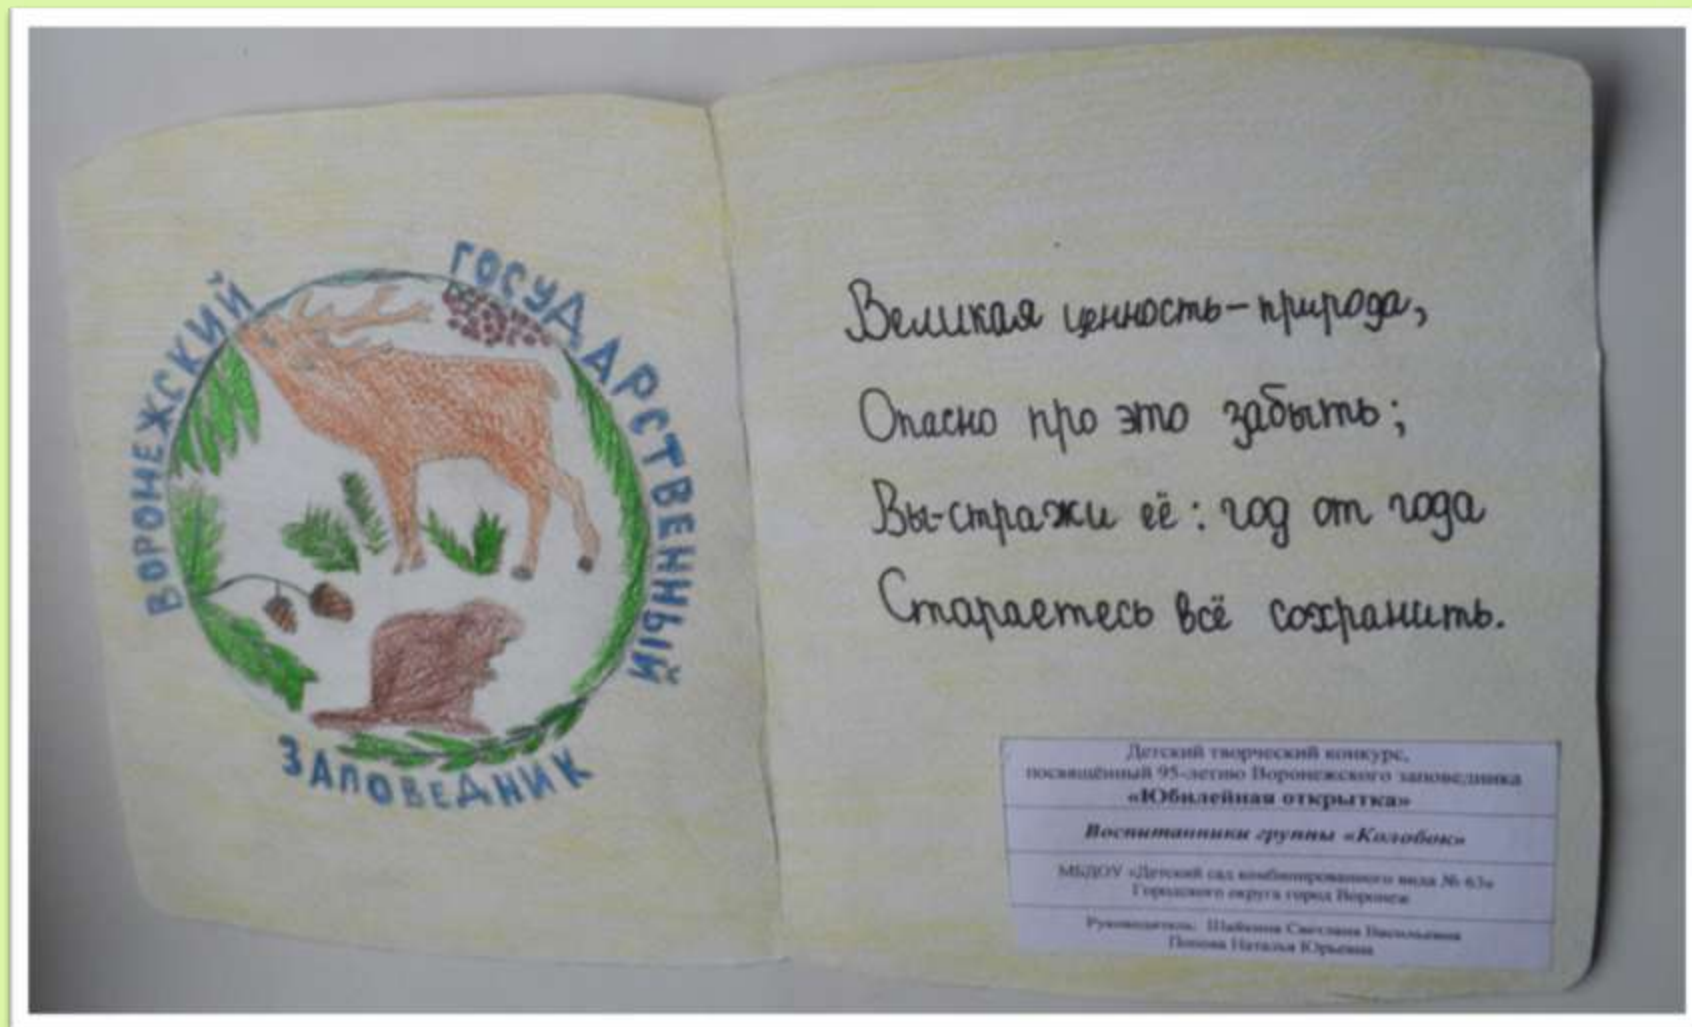 ВОРОНЕЖСКИЙ
ГОСУДАРСТВЕННЫЙ
ЗАПОВЕДНИК
Великая ценность-природа,
Опасно про это забыть;
Вы-стражи её: год от года
Стараетесь всё сохранить.
Детский творческий конкурс,
посвящённый 95-летию Воронежского заповедника
«Юбилейная открытка»
Воспитанники группы «Колобок»
МБДОУ «Детский сад комбинированного вида № 63»
Городского округа город Воронеж
Руководитель: Светлана Васильевна
Попова Наталья Юрьевна